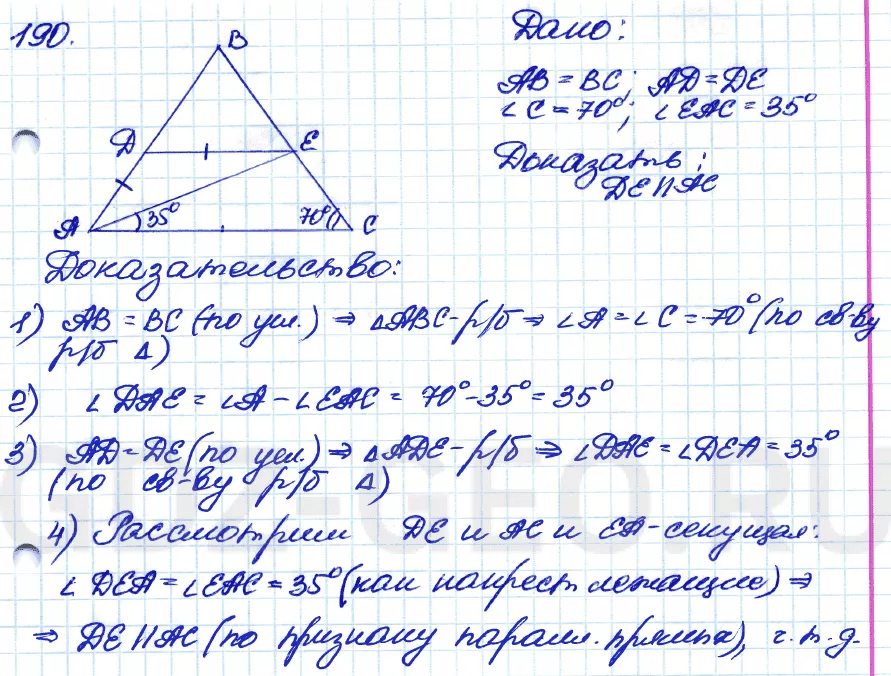 190.
B
D
E
A
35°
70°
C
Дано:
AB = BC; AD = DE
∠C = 70°; ∠EAC = 35°
Доказать:
DE || AC
Доказательство:
1) AB = BC (по усл.) ⇒ △ABC - р/б ⇒ ∠A = ∠C = 70° (по св-ву
р/б △)
2) ∠DAE = ∠A - ∠EAC = 70° - 35° = 35°
3) AD = DE (по усл.) ⇒ △ADE - р/б ⇒ ∠DAE = ∠DEA = 35°
(по св-ву р/б △)
4) Рассмотрим DE и AC и EA - секущая:
∠DEA = ∠EAC = 35° (как накрест лежащие) ⇒
⇒ DE || AC (по признаку паралл. прямых), ч.т.д.
GDZ-GEO.RU